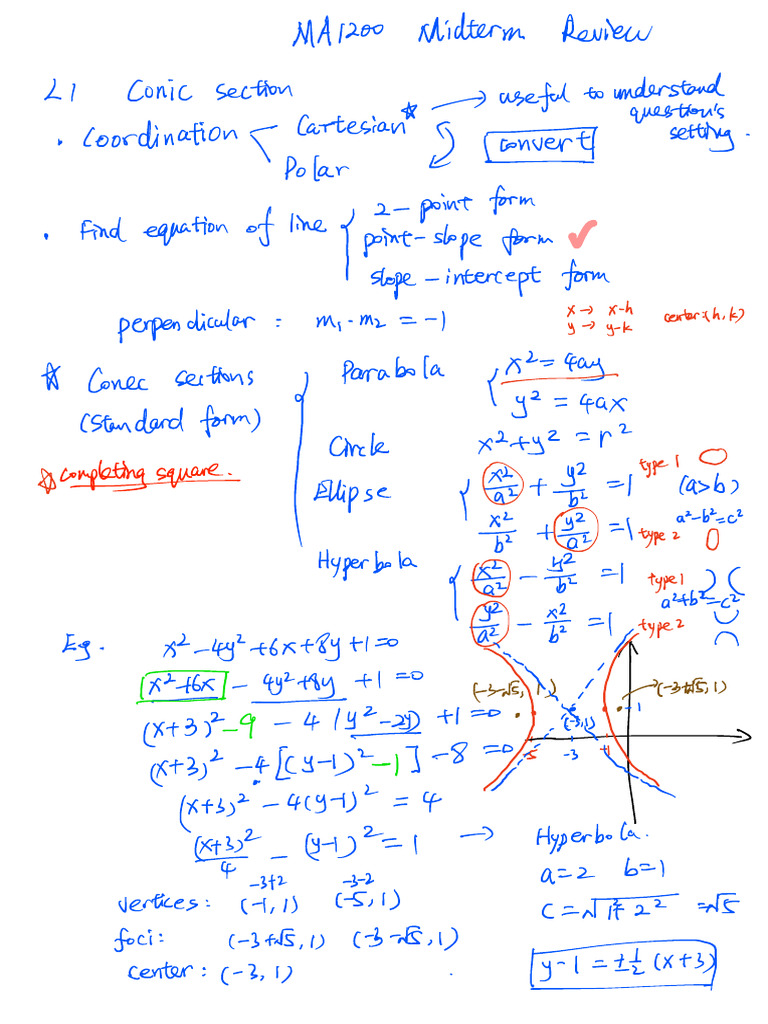 MA1200 Midterm Review
L1 Conic section
• Coordination Cartesian* → useful to understand question's setting.
Polar convert
• Find equation of line 2-point form
point-slope form ✓
slope-intercept form
perpendicular : m₁·m₂ = -1
x → x-h
y → y-k
center:(h,k)
☆ Conec sections
(standard form)
☆ completing square.
Parabola x² = 4ay
y² = 4ax
Circle x²+y² = r²
Ellipse x²/a² + y²/b² = 1 type 1 (a>b)
x²/b² + y²/a² = 1 type 2 a²-b²=c²
Hyperbola x²/a² - y²/b² = 1 type 1
a²+b²=c²
y²/a² - x²/b² = 1 type 2
Eg. x²-4y²+6x+8y+1=0
x²+6x - 4y²+8y +1=0
(x+3)²-9 - 4(y²-2y) +1=0
(x+3)² -4[(y-1)²-1] -8=0
(x+3)² - 4(y-1)² = 4
(x+3)²/4 - (y-1)² = 1 → Hyperbola.
(-3-√5, 1)
(-3+√5, 1)
(-3,1)
1
-5 -3 -1
a=2 b=1
c=√1²+2² =√5
y-1 = ±1/2 (x+3)
-3+2 -3-2
vertices: (-1,1) (-5,1)
foci: (-3+√5,1) (-3-√5,1)
center: (-3,1)